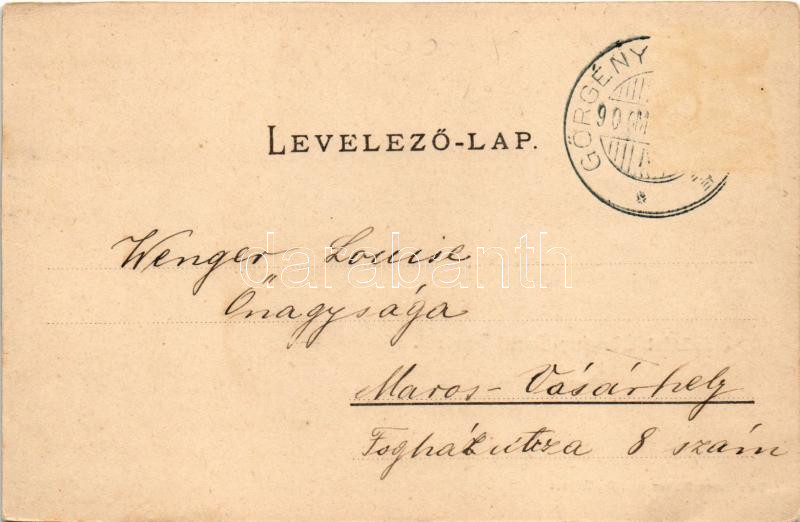 LEVELEZŐ-LAP.
GÖRGÉNY
900
Wenger Louise
Őnagysága
Maros-Vásárhely
Fogház utcza 8 szám
darabanth